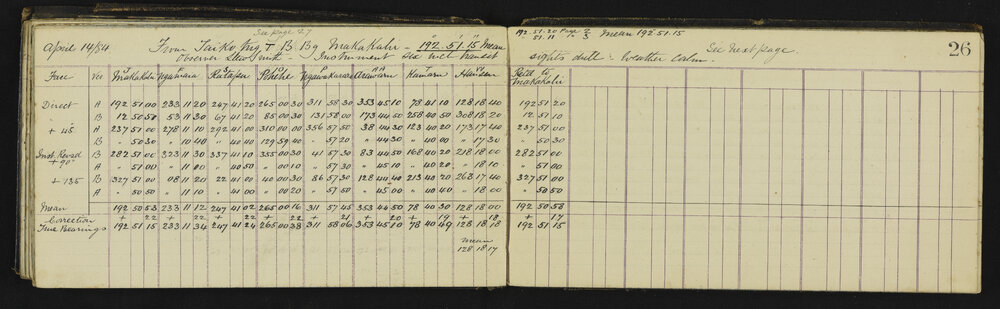 See page 27
April 14/84 From Taiko Trig T B. Bg Makakahi - 192°.51'.15" Mean
Observer Instrument Six inch transit
192.51.20 Page 2
" 51.11 " 3 Mean 192.51.15
sights dull: Weather calm. See next page. 26
Face Ver Makakahi Ngawawa Rutapu Pohehe Ngawakarara Arawaru Kaitara Hansen Refd to Makakahi
Direct A 192 51 00 233 11 20 247 41 20 265 00 30 311 58 30 353 45 10 78 41 10 128 18 40 192 51 20
" B 12 50 50 53 11 30 67 41 20 85 00 30 131 58 00 173 44 50 258 40 50 308 18 20 12 51 10
+ 45° A 237 51 00 278 11 10 292 41 00 310 00 00 356 57 50 38 44 30 123 40 20 173 17 40 237 51 00
B " 50 30 " 10 40 " 40 40 129 59 40 " 57 20 " 44 30 " 40 00 " 17 30 " 50 30
Inst. Revsd +90° B 282 51 00 323 11 30 337 41 10 355 00 30 41 57 30 83 44 50 168 40 20 218 18 00 282 51 00
A " 51 00 " 11 00 " 40 50 " 00 10 " 57 30 " 45 10 " 40 20 " 18 10 " 51 00
+ 135 B 327 51 00 08 11 20 22 41 00 40 00 30 86 57 30 128 44 40 213 40 20 268 17 40 327 51 00
A " 50 50 " 11 10 " 41 00 " 00 20 " 57 50 " 45 00 " 40 40 " 18 00 " 50 50
Mean 192 50 53 233 11 12 247 41 02 265 00 16 311 57 45 353 44 50 78 40 30 128 18 00 192 50 58
Correction + 22 + 22 + 22 + 22 + 21 + 20 + 19 + 18 + 17
True Bearings 192 51 15 233 11 34 247 41 24 265 00 38 311 58 06 353 45 10 78 40 49 128 18 18 192 51 15
mean
128.18.17